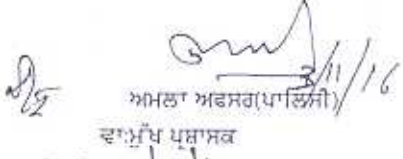 3/11/16
ਅਮਲਾ ਅਫਸਰ(ਪਾਲਿਸੀ)
ਵਾ:ਮੁੱਖ ਪ੍ਰਸ਼ਾਸਕ